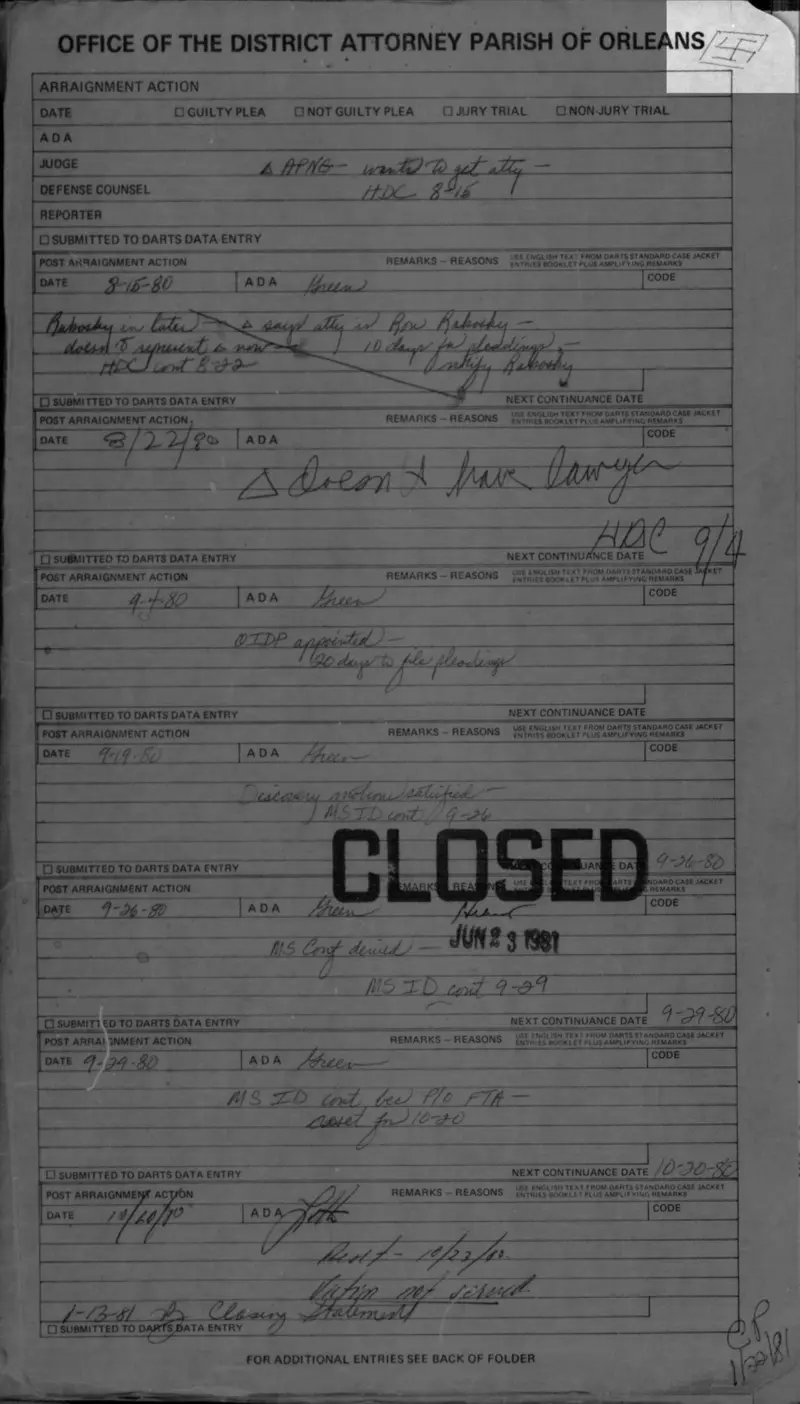 OFFICE OF THE DISTRICT ATTORNEY PARISH OF ORLEANS
ARRAIGNMENT ACTION
DATE ☐ GUILTY PLEA ☐ NOT GUILTY PLEA ☐ JURY TRIAL ☐ NON-JURY TRIAL
ADA
JUDGE
Δ APNG - wants to get atty -
DEFENSE COUNSEL
HDC 8-15
REPORTER
☐ SUBMITTED TO DARTS DATA ENTRY
POST ARRAIGNMENT ACTION REMARKS - REASONS USE ENGLISH TEXT FROM DARTS STANDARD CASE JACKET
ENTRIES BOOKLET PLUS AMPLIFYING REMARKS
DATE 8-15-80 ADA Green CODE
Rakosky in later - Δ says atty is Ron Rakosky -
doesn't represent Δ now - 10 days for pleadings -
HDC cont 8-22 notify Rakosky
☐ SUBMITTED TO DARTS DATA ENTRY NEXT CONTINUANCE DATE
POST ARRAIGNMENT ACTION REMARKS - REASONS USE ENGLISH TEXT FROM DARTS STANDARD CASE JACKET
ENTRIES BOOKLET PLUS AMPLIFYING REMARKS
DATE 8/22/80 ADA CODE
Δ Doesn't have lawyer
HDC 9/4
☐ SUBMITTED TO DARTS DATA ENTRY NEXT CONTINUANCE DATE
POST ARRAIGNMENT ACTION REMARKS - REASONS USE ENGLISH TEXT FROM DARTS STANDARD CASE JACKET
ENTRIES BOOKLET PLUS AMPLIFYING REMARKS
DATE 9-4-80 ADA Green CODE
OIDP appointed -
20 days to file pleadings
☐ SUBMITTED TO DARTS DATA ENTRY NEXT CONTINUANCE DATE
POST ARRAIGNMENT ACTION REMARKS - REASONS USE ENGLISH TEXT FROM DARTS STANDARD CASE JACKET
ENTRIES BOOKLET PLUS AMPLIFYING REMARKS
DATE 9-19-80 ADA Green CODE
Discovery motions satisfied -
MS ID cont 9-26
CLOSED
☐ SUBMITTED TO DARTS DATA ENTRY 9-26-80
POST ARRAIGNMENT ACTION
DATE 9-26-80 ADA Green CODE
MS Conf denied - JUN 23 1981
MS ID cont 9-29
☐ SUBMITTED TO DARTS DATA ENTRY NEXT CONTINUANCE DATE 9-29-80
POST ARRAIGNMENT ACTION REMARKS - REASONS USE ENGLISH TEXT FROM DARTS STANDARD CASE JACKET
ENTRIES BOOKLET PLUS AMPLIFYING REMARKS
DATE 9-29-80 ADA Green CODE
MS ID cont bec P/O FTA -
reset for 10-20
☐ SUBMITTED TO DARTS DATA ENTRY NEXT CONTINUANCE DATE 10-20-80
POST ARRAIGNMENT ACTION REMARKS - REASONS USE ENGLISH TEXT FROM DARTS STANDARD CASE JACKET
ENTRIES BOOKLET PLUS AMPLIFYING REMARKS
DATE 10/20/80 ADA CODE
Reset - 10/22/80
Victim not served
1-13-81 Closing Statement
☐ SUBMITTED TO DARTS DATA ENTRY
CP
1/22/81
FOR ADDITIONAL ENTRIES SEE BACK OF FOLDER